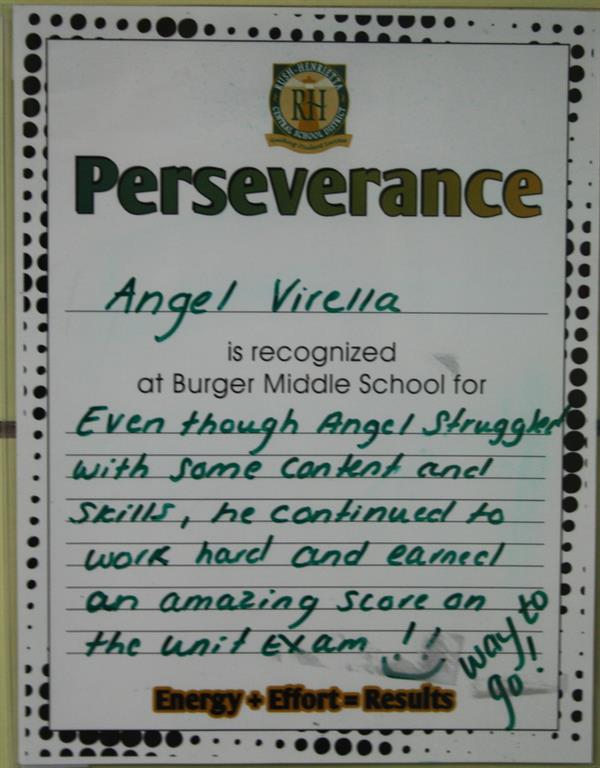 RUSH-HENRIETTA
RH
CENTRAL SCHOOL DISTRICT
Perseverance
Angel Virella
is recognized
at Burger Middle School for
Even though Angel Struggled
with some content and
skills, he continued to
work hard and earned
an amazing score on
the unit Exam !!
way to
go!
Energy + Effort = Results